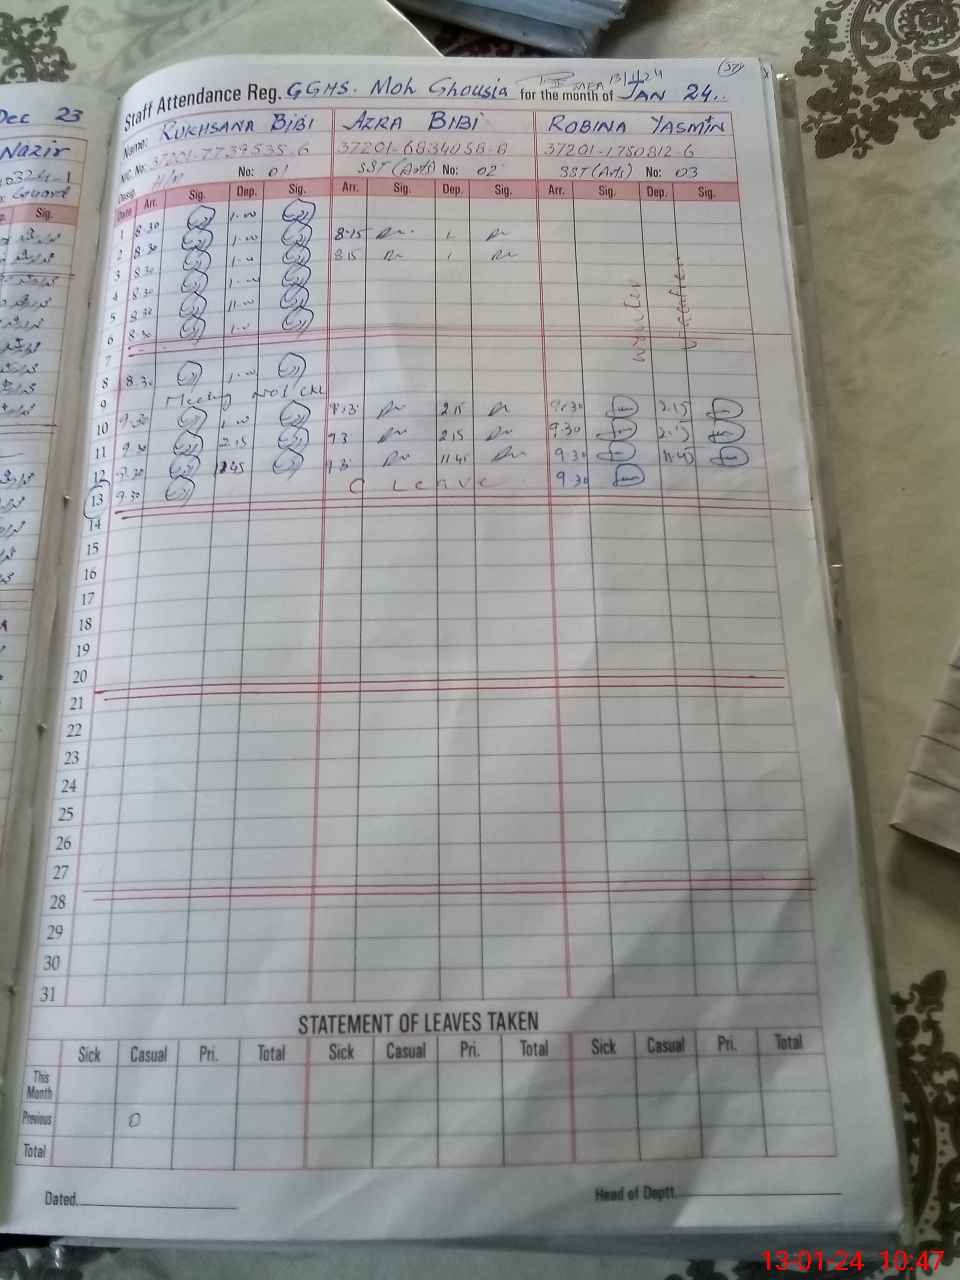 Dec 23
Nazir
Guard
Sig.
(57)
13/1/24
Staff Attendance Reg. GGHS. Moh Ghousia for the month of JAN 24..
Name: RUKHSANA BIBI AZRA BIBI ROBINA YASMIN
NIC No: 37201-7739535-6 37201-6834058-8 37201-1750812-6
Desig: H/M No: 01 SST (Arts) No: 02 SST (Arts) No: 03
Date Arr. Sig. Dep. Sig. Arr. Sig. Dep. Sig. Arr. Sig. Dep. Sig.
1 8.30 1.00
2 8.30 1.00 8-15 1
3 8.30 1.00 8 15 1
4 8.30 1.00
5 8.30 11.00
6 8.30 1.00
Winter
Vacation
7
8 8.30 1.00
9 Meeting
10 9.30 1.00 2.15 9.30 2.15
11 9.30 2.15 9.3 2.15 9.30 2.15
12 9.30 9.3 11.45 9.30 11.45
13 9.30 C Leave 9.30
14
15
16
17
18
19
20
21
22
23
24
25
26
27
28
29
30
31
STATEMENT OF LEAVES TAKEN
Sick Casual Pri. Total Sick Casual Pri. Total Sick Casual Pri. Total
This Month
Previous 0
Total
Dated. Head of Deptt.
13-01-24 10:47